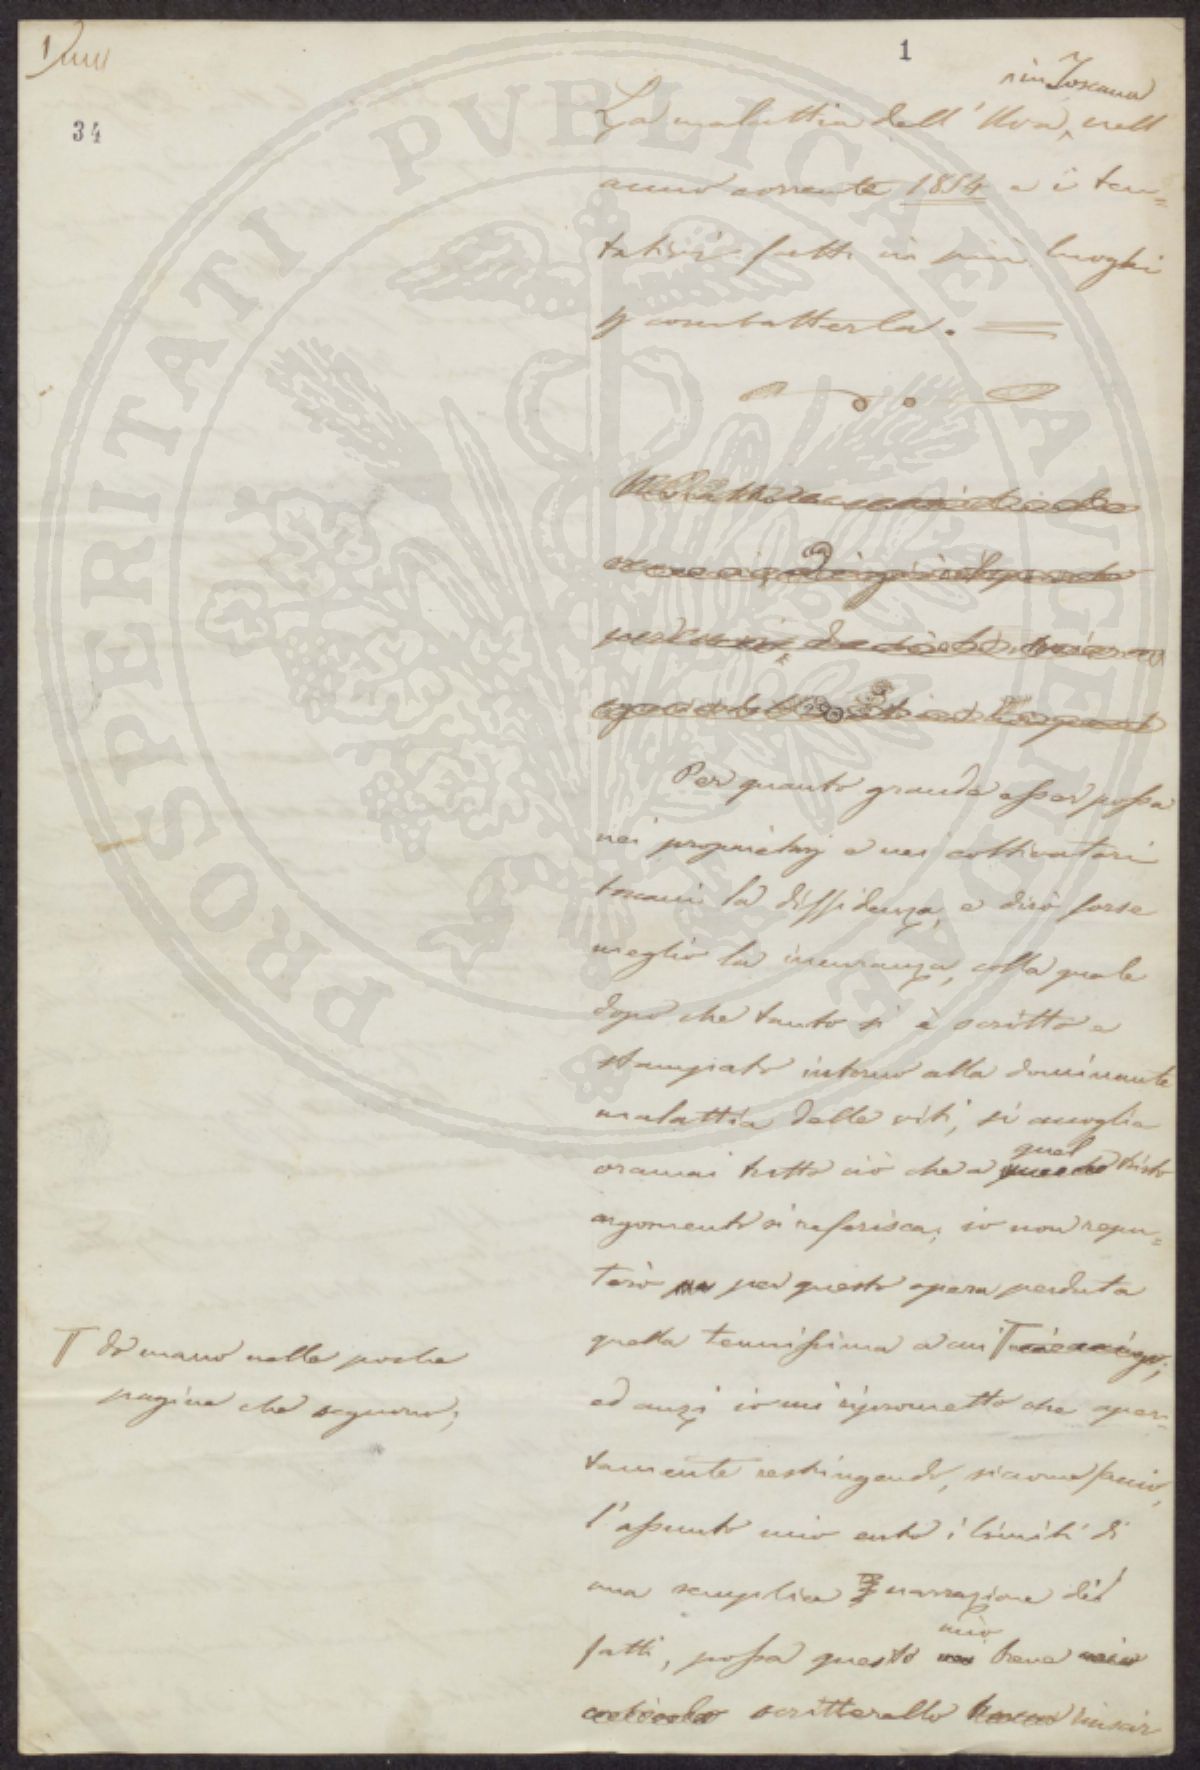 1
34
1
in Toscana
La malattia dell' Uva, nell'
anno corrente 1854 e i ten=
tativi fatti in più luoghi
p combatterla.
Per quanto grande esser possa
nei proprietarj e nei coltivatori
toscani la diffidenza, e dirò forse
meglio la incuranza, colla quale
dopo che tanto si è scritto e
stampato intorno alla dominante
malattia delle viti, si accoglie
oramai tutto ciò che a quel tristo
argomento si referisca; io non repu=
terò per questo opera perduta
quella tenuissima a cui
do mano nelle poche
pagine che seguono;
ed anzi io mi riprometto che aper=
tamente restringendo, siccome faccio,
l'assunto mio entro i limiti di
una semplice narrazione dei
fatti, possa questo mio breve
scritterello riuscir
PROSPERITATI PUBLICAE AUGENDAE